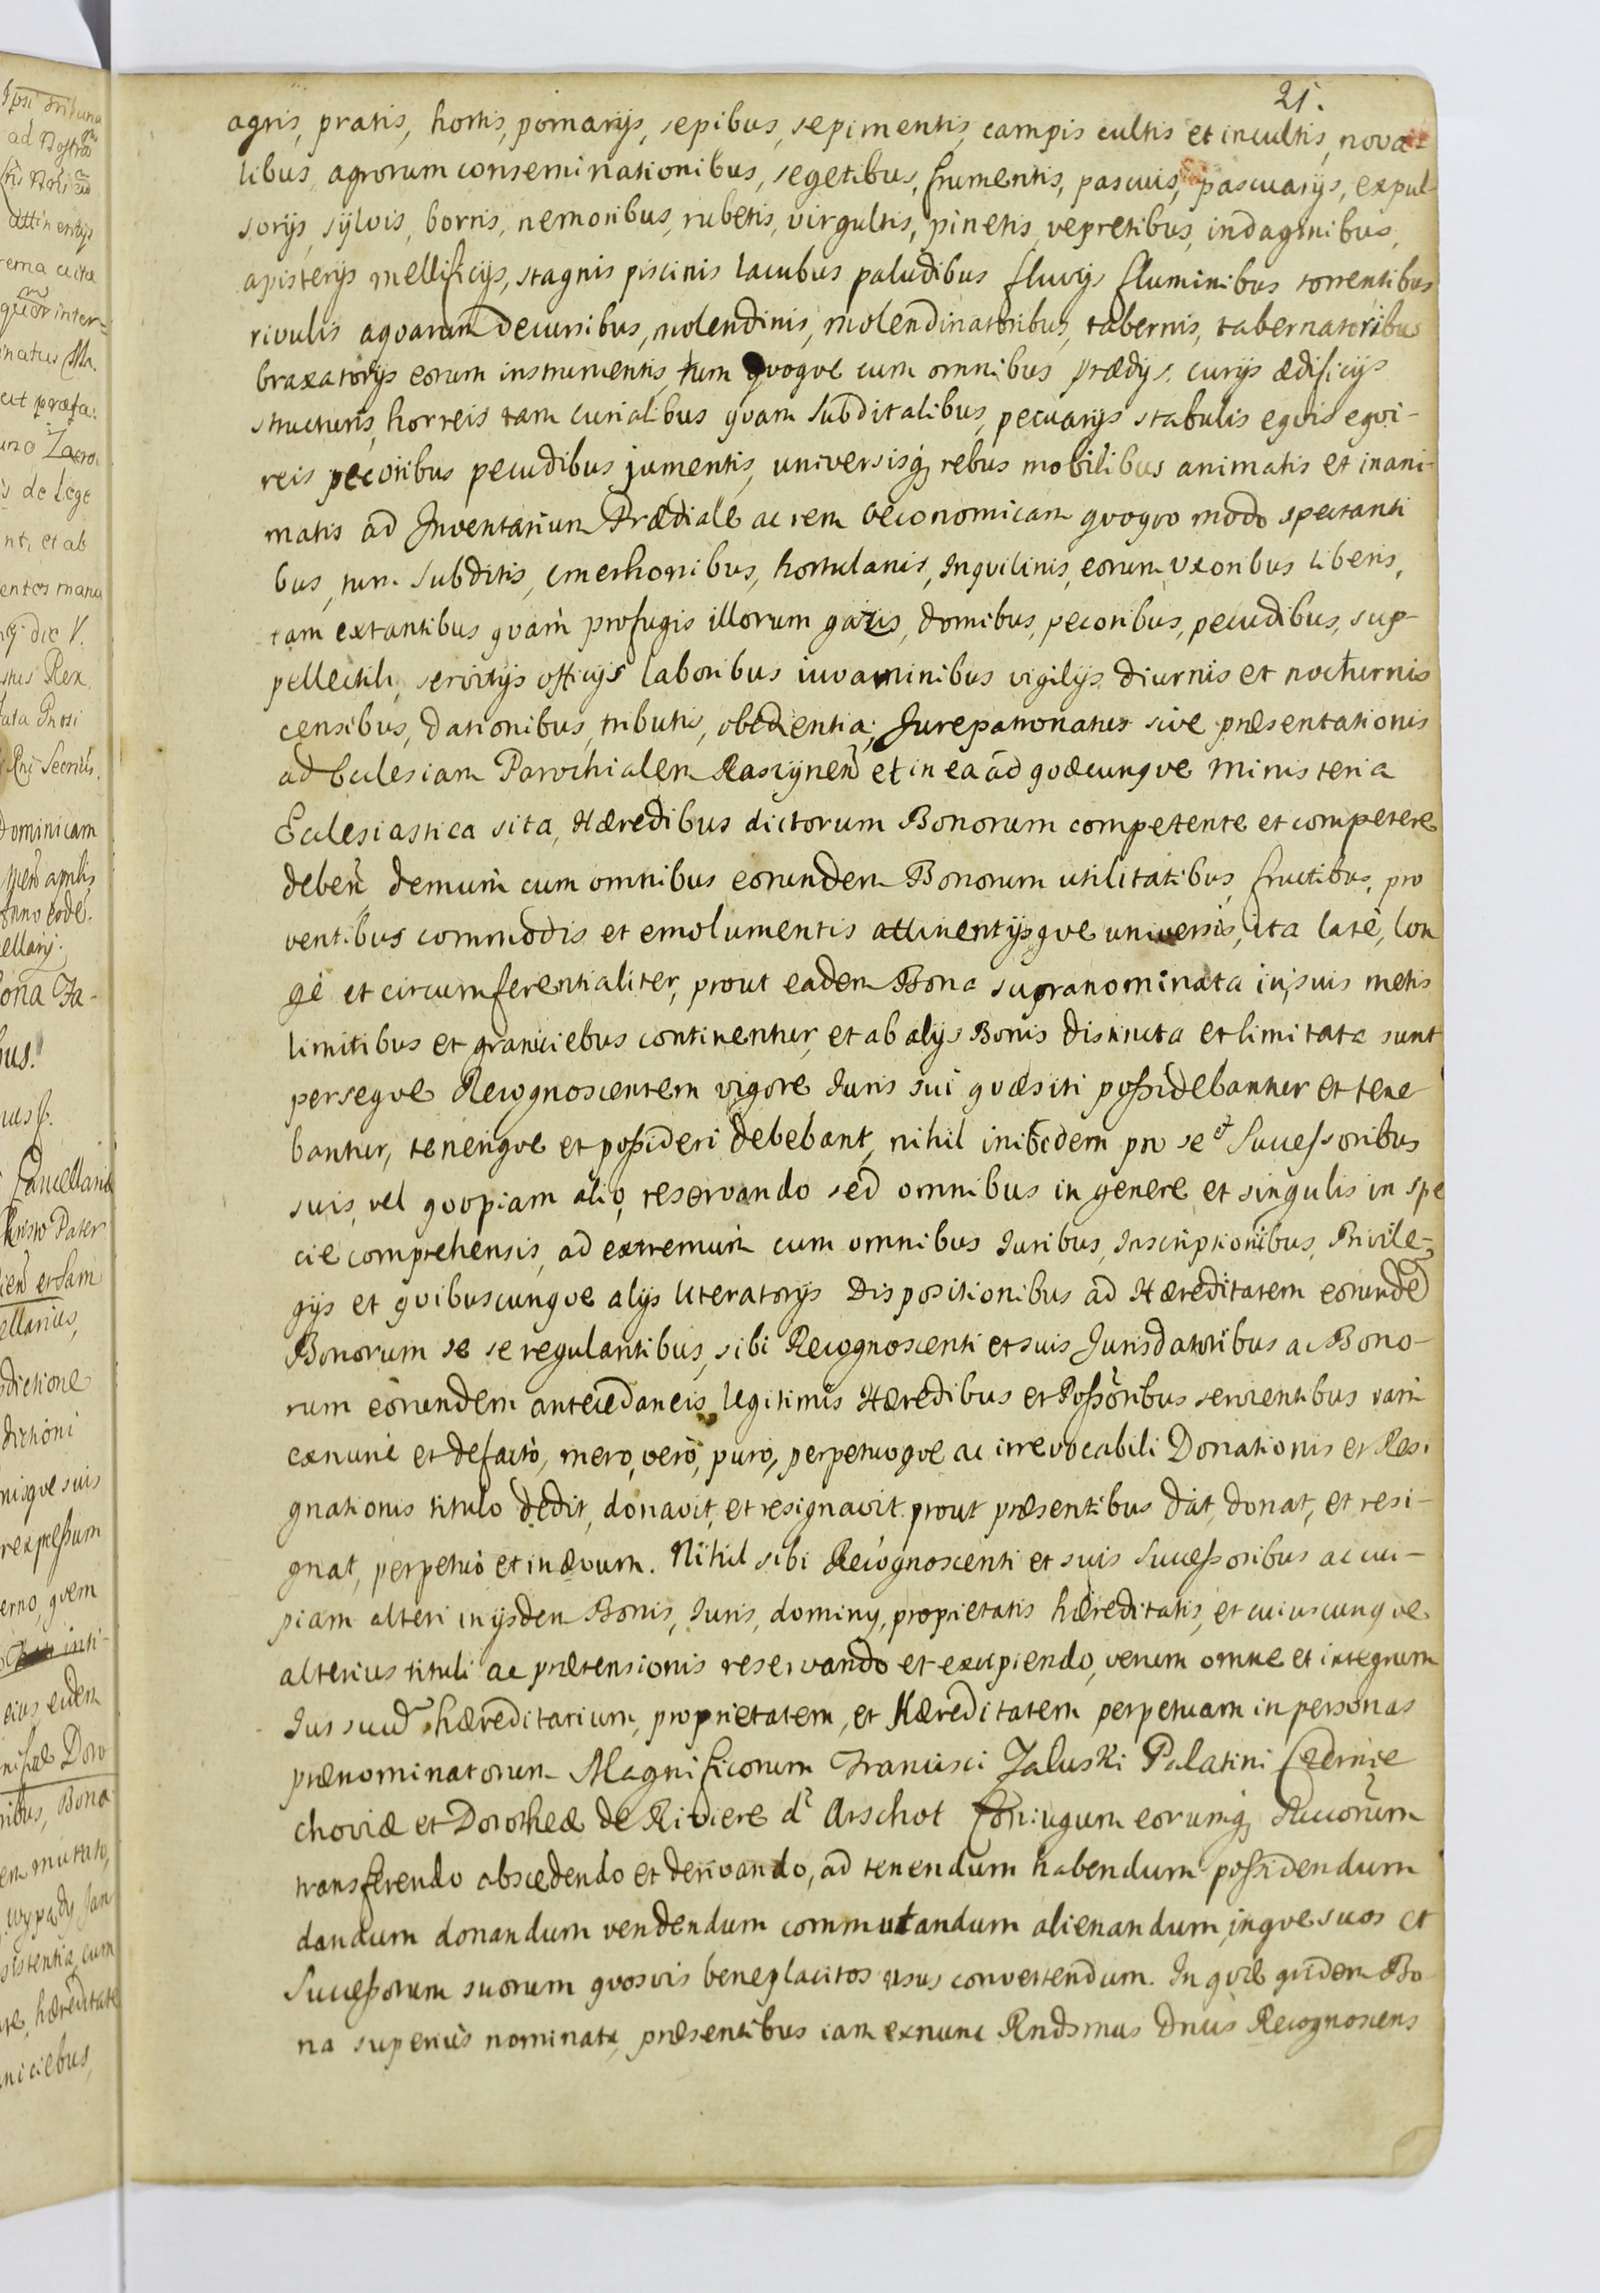 21.
agris, pratis, hortis, pomarijs, sepibus, sepimentis, campis cultis et incultis, nova
libus agrorum conseminationibus, segetibus, frumentis, pascuis, pascuarijs, expul-
sorijs, sylvis, borris, nemoribus, rubetis, virgultis, pinetis, vepretibus, indaginibus,
apisterijs mellificijs, stagnis piscinis lacubus paludibus fluvijs fluminibus torrentibus
rivulis aqvarum decursibus, molendinis, molendinatoribus, tabernis, tabernatoribus
braxatorijs eorum instrumentis, tum qvoqve cum omnibus prædijs, curijs ædificijs
structuris, horreis tam curialibus qvam subditalibus, pecuarijs stabulis eqvis eqvi-
reis pecoribus pecudibus jumentis, universisq₃ rebus mobilibus animatis et inani-
matis ad Inventarium Prædiale ac rem oeconomicam qvoqvo modo spectanti
bus, tum subditis, cmethonibus, hortulanis, Inqvilinis, eorum uxoribus liberis,
tam extantibus qvam profugis illorum gazis, domibus, pecoribus, pecudibus, sup-
pellectili, servitijs officijs laboribus iuvaminibus vigilijs diurnis et nocturnis
censibus, dationibus, tributis, obedientia; Jurepatronatus sive præsentationis
ad Eclesiam Parochialem Rascynen̄ et in ea ad qvæcunqve ministeria
Eclesiastica sita, Hæredibus dictorum Bonorum competente et competere
deben̄ demum cum omnibus eorundem Bonorum utilitatibus, fructibus, pro
ventibus commodis et emolumentis attinentijsqve universis, ita latè, lon
gè et circumferentialiter, prout eadem Bona supranominata in suis metis
limitibus et graniciebus continentur, et ab alijs Bonis distincta et limitata sunt
perseqve Recognoscentem vigore Iuris sui qvæsiti possidebantur et tene
bantur, teneriqve et possideri debebant, nihil inibidem pro se et Successoribus
suis, vel qvopiam alio, reservando sed omnibus in genere et singulis in spe
cie comprehensis, ad extremum cum omnibus Iuribus, Inscriptionibus, Privile-
gijs et qvibuscunqve alijs literatorijs dispositionibus ad Hæreditatem eorunde
Bonorum se se regulantibus, sibi Recognoscenti et suis Jurisdatoribus ac Bono-
rum eorundem antecedaneis, legitimis Hæredibus et Possoribus servientibus iam
exnunc et defacto, mero, vero, puro, perpetuoqve ac irrevocabili Donationis et Resi
gnationis titulo dedit, donavit, et resignavit prout præsentibus dat, donat, et resi-
gnat, perpetuò et in ævum. Nihil sibi Recognoscenti et suis Successoribus ac cui-
piam alteri in ijsdem Bonis, Iuris, dominij, proprietatis hæreditatis, et cuiuscunqve
alterius tituli ac prætensionis reservando et excipiendo, verum omne et integrum
Ius suū hæreditarium, proprietatem, et Hæreditatem perpetuam in personas
prænominatorum Magnificorum Francisci Zaluski Palatini Czernie
choviæ et Dorotheæ de Riviere d' Arschot Coniugum eorumq₃ Succorum
transferendo abscedendo et derivando, ad tenendum habendum possidendum
dandum donandum vendendum commutandum alienandum, inqve suos et
Successorum suorum qvosvis beneplacitos usus convertendum. In qvæ qvidem Bo
na superius nominata, præsentibus iam exnunc Rndsmus Dnus Recognoscens